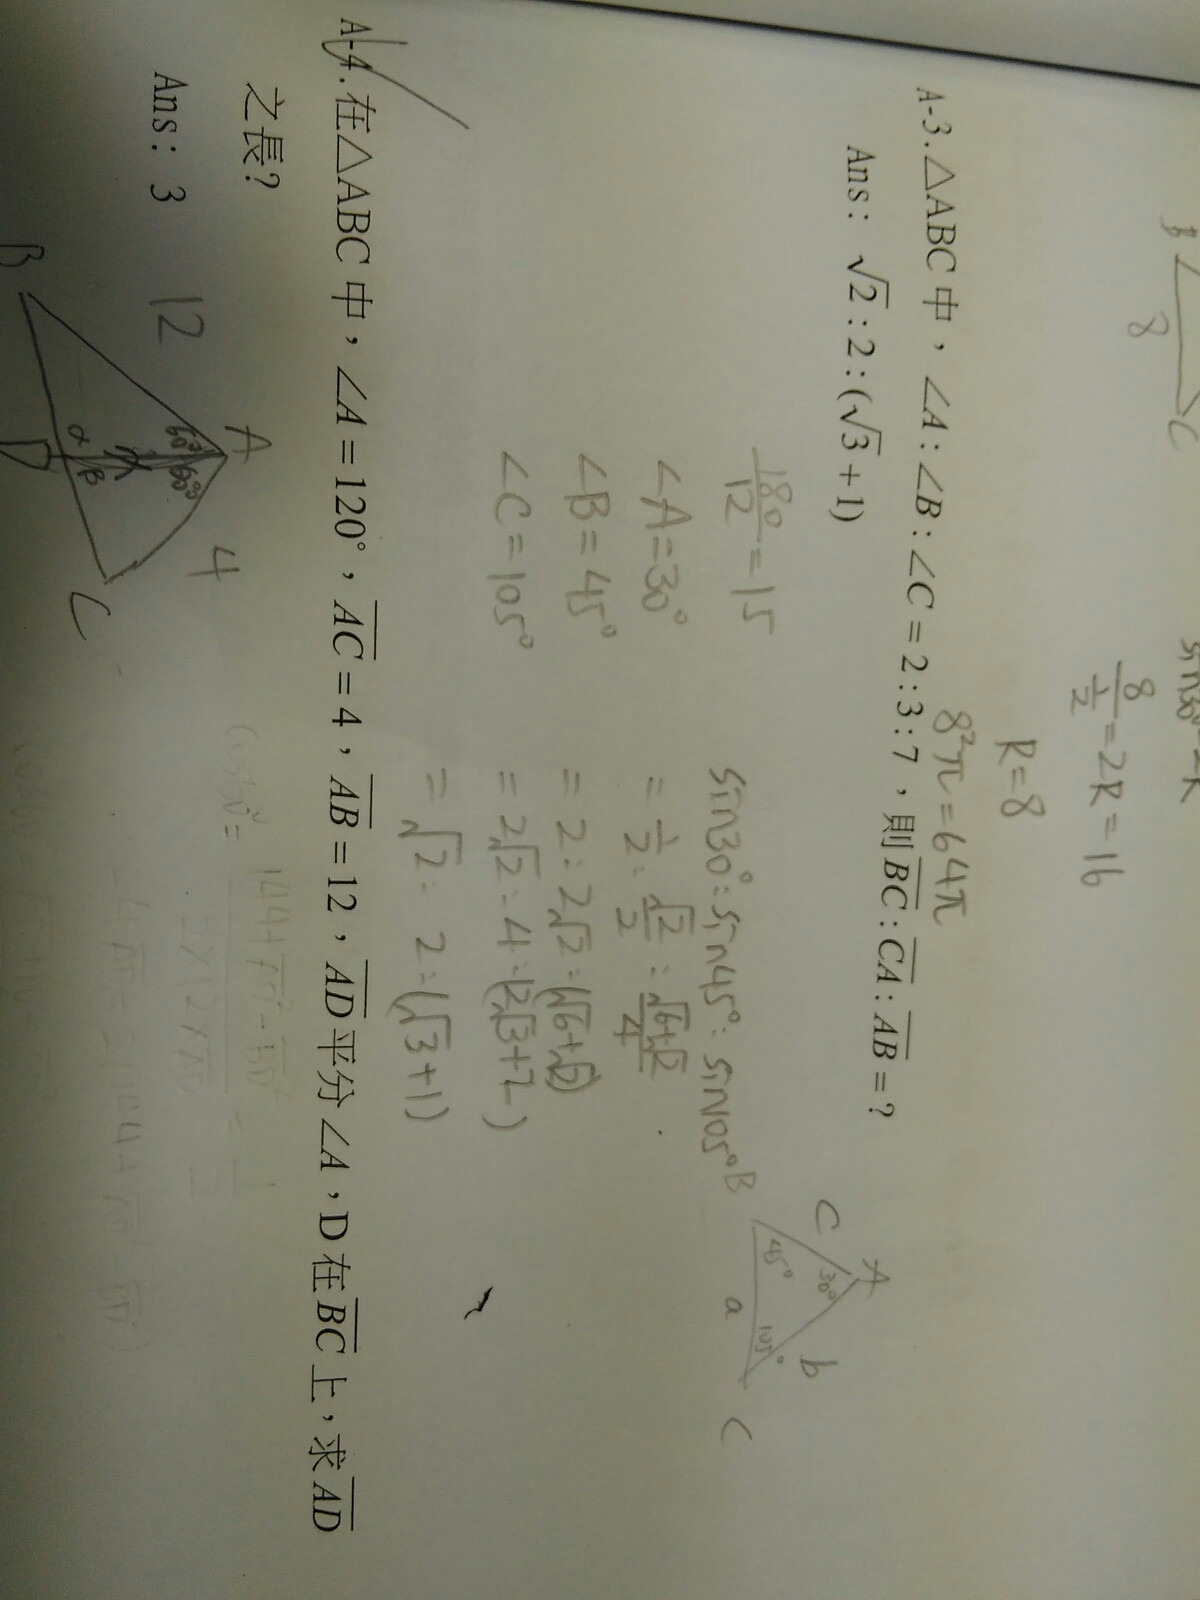 B
8
C
sin30°
8/(1/2)=2R=16
R=8
8²π=64π
A-3.△ABC 中，∠A:∠B:∠C=2:3:7，則BC:CA:AB=?
Ans: √2:2:(√3+1)
180/12=15
∠A=30°
∠B=45°
∠C=105°
sin30°:sin45°:sin105°
=1/2:√2/2:(√6+√2)/4
=2:2√2:(√6+√2)
=2√2:4:(2√3+2)
=√2:2:(√3+1)
A
B
C
C
30°
45°
105°
b
a
A-4.在△ABC 中，∠A=120°，AC=4，AB=12，AD平分∠A，D在BC上，求AD
之長?
Ans: 3
12
A
4
60°
60°
α
β
B
C